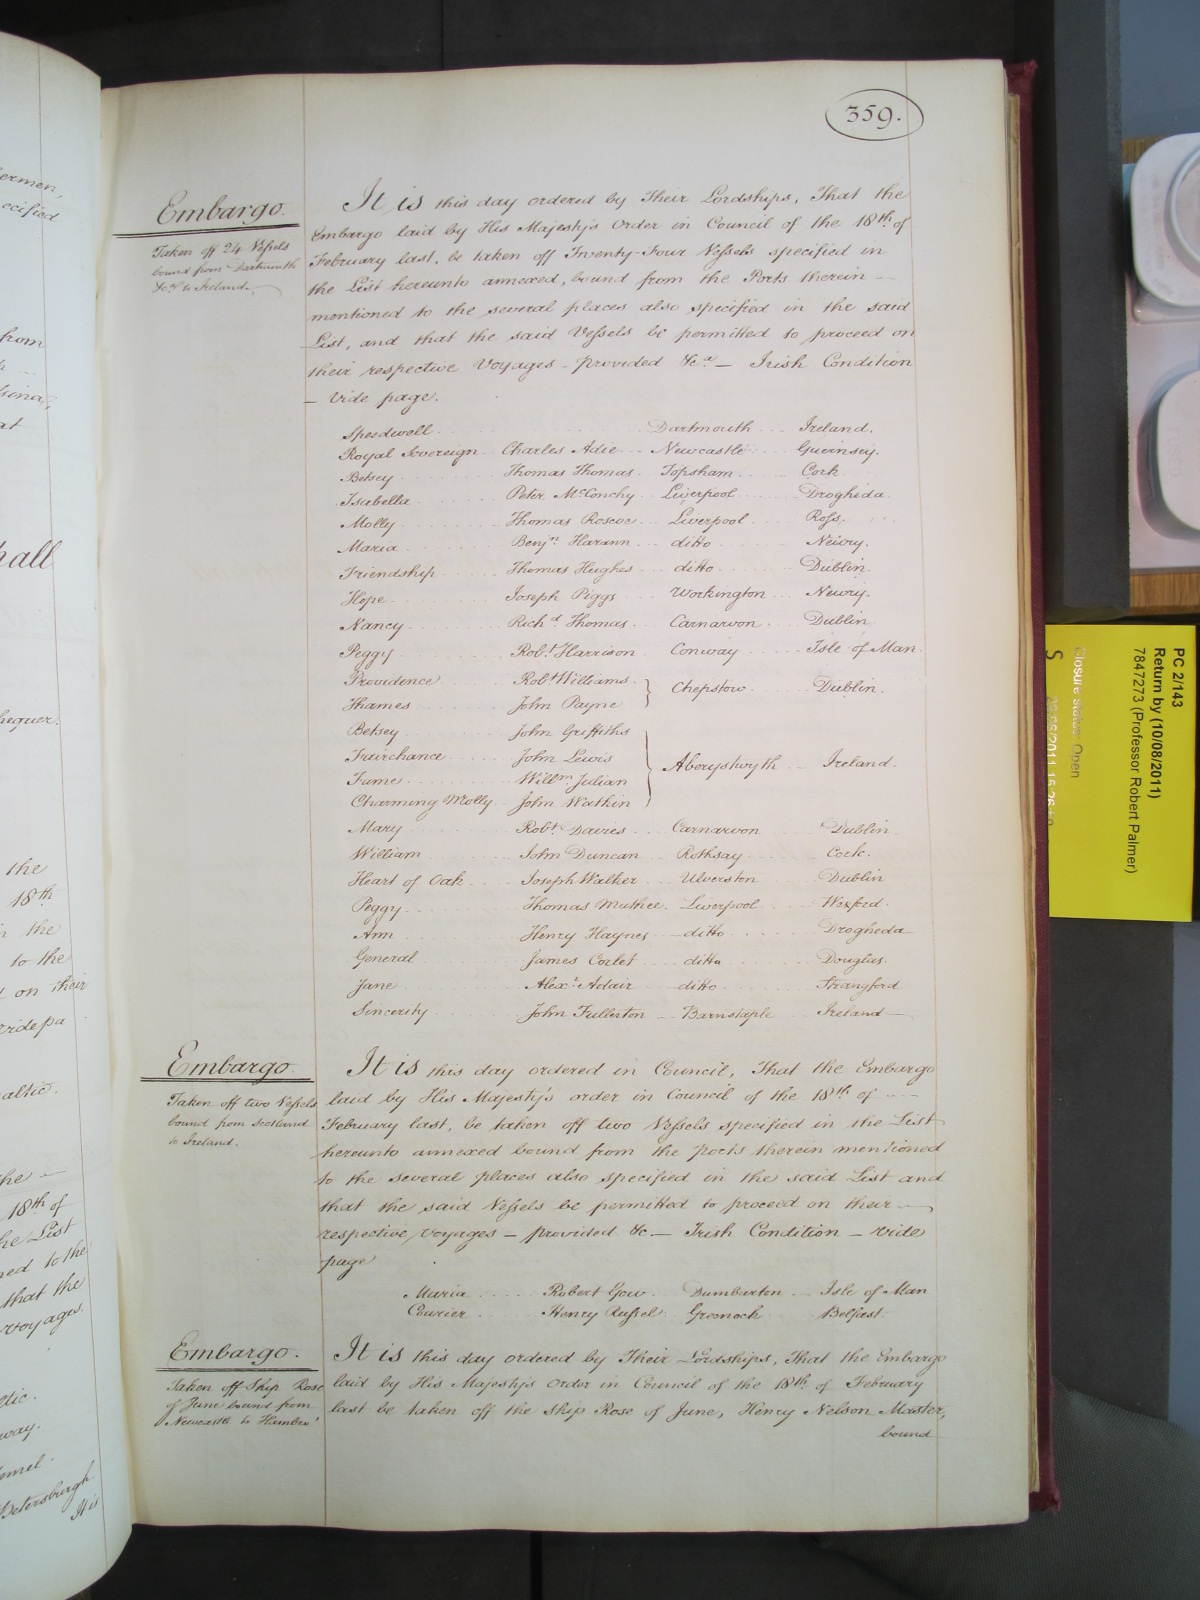 359.
Embargo.
Taken off 24 Vessels
bound from Dartmouth
&ca to Ireland.
It is this day ordered by Their Lordships, That the
Embargo laid by His Majesty's Order in Council of the 18th of
February last, be taken off Twenty-Four Vessels specified in
the List hereunto annexed, bound from the Ports therein
mentioned to the several places also specified in the said
List, and that the said Vessels be permitted to proceed on
their respective Voyages - provided &ca — Irish Condition
— Vide page.
Speedwell Dartmouth Ireland.
Royal Sovereign Charles Adie Newcastle Guernsey.
Betsey Thomas Thomas Topsham Cork
Isabella Peter McConchy Liverpool Drogheda.
Molly Thomas Roscoe Liverpool Ross.
Maria Benjn Harann ditto Newry.
Friendship Thomas Hughes ditto Dublin.
Hope Joseph Piggs Workington Newry.
Nancy Richd Thomas Carnarvon Dublin
Peggy Robt Harrison Conway Isle of Man.
Providence Robt Williams
Chepstow Dublin.
Thames John Payne
Betsey John Griffiths
Fairchance John Lewis
Aberystwyth Ireland.
Fame Willm Julian
Charming Molly John Watkin
Mary Robt Davies Carnarvon Dublin
William John Duncan Rothsay Cork.
Heart of Oak Joseph Walker Ulverston Dublin
Peggy Thomas Liverpool Wexford.
Ann Henry Haynes ditto Drogheda
General James Corlet ditto Douglas.
Jane Alexr Adair ditto Strangford
Sincerity John Fullerton Barnstaple Ireland
Embargo
Taken off two Vessels
bound from Scotland
to Ireland.
It is this day ordered in Council, That the Embargo
laid by His Majesty's order in Council of the 18th of
February last, be taken off two Vessels specified in the List
hereunto annexed bound from the ports therein mentioned
to the several places also specified in the said List and
that the said Vessels be permitted to proceed on their
respective Voyages — provided &c — Irish Condition — vide
page
Maria Robert Gow Dumbarton Isle of Man
Courier Henry Russel Greenock Belfast.
Embargo.
Taken off Ship Rose
of June bound from
Newcastle to Hambro'
It is this day ordered by Their Lordships, That the Embargo
laid by His Majesty's Order in Council of the 18th of February
last be taken off the Ship Rose of June, Henry Nelson Master,
bound
PC 2/143
Return by (10/08/2011)
7847273 (Professor Robert Palmer)
Closure status: Open
S
ermen,
ecified
from
at
hall
hequer.
the
18th
the
to the
on their
vide pa
altic.
the
18th of
he List
ned to the
that the
voyages.
way.
Petersburgh
It is